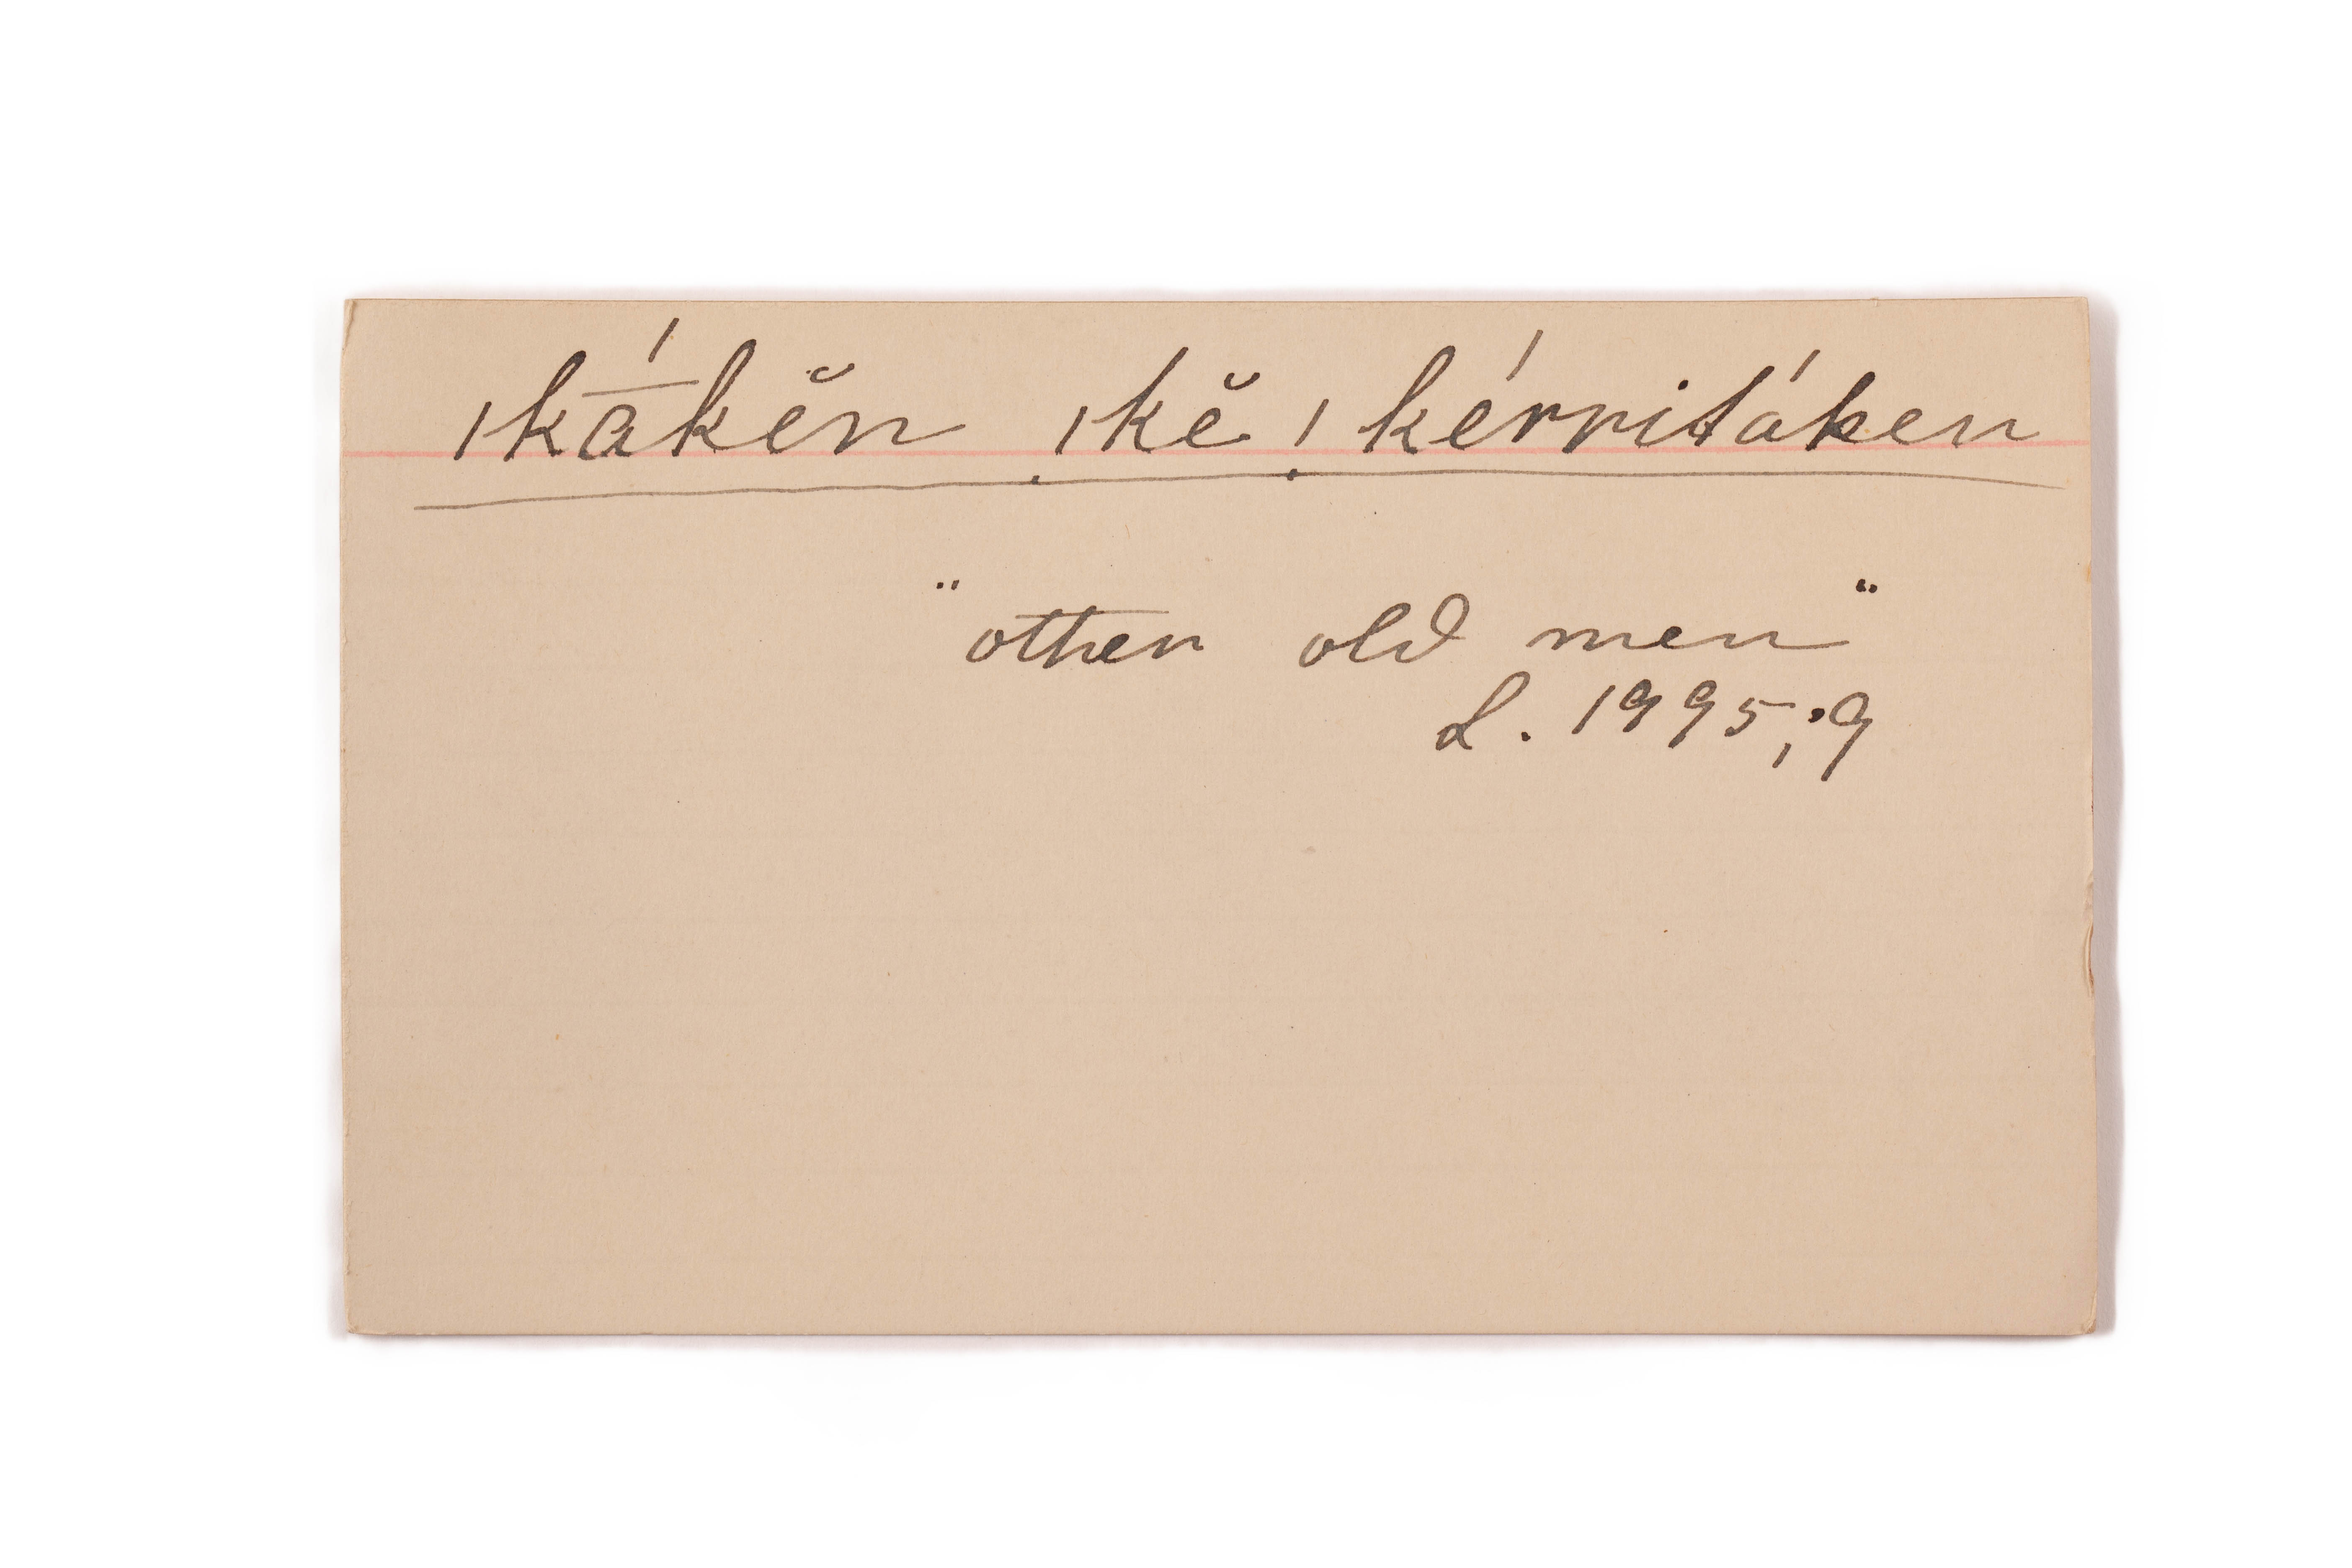 ˌkā́kĕn ˌkĕ ˌkérritáken
"other old men"
L. 1995;9